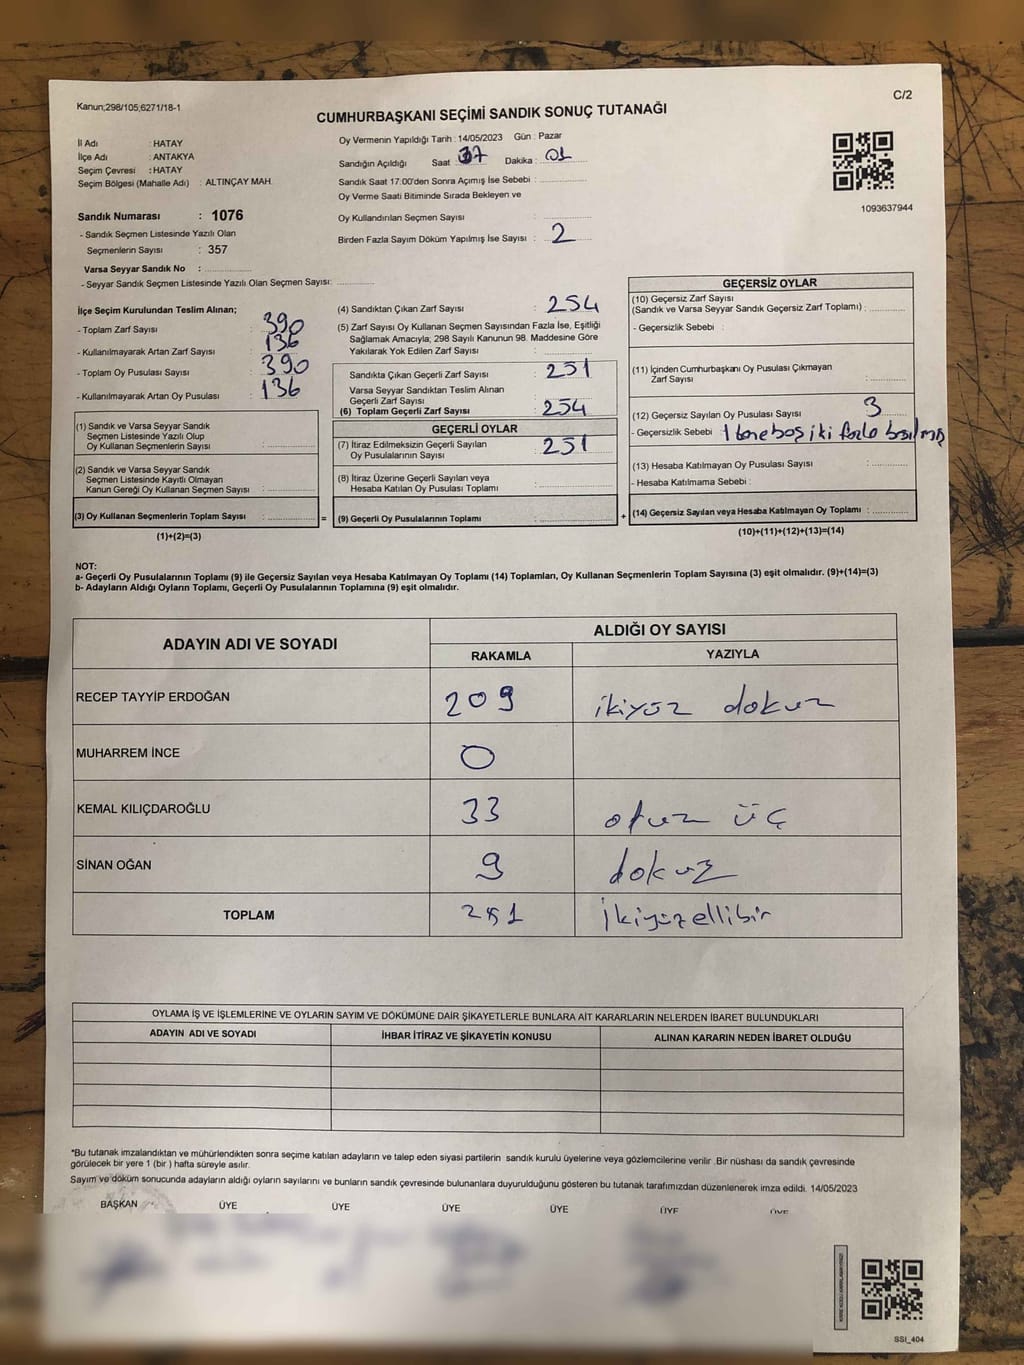 Kanun;298/105;6271/18-1
C/2
CUMHURBAŞKANI SEÇİMİ SANDIK SONUÇ TUTANAĞI
İl Adı : HATAY
İlçe Adı : ANTAKYA
Seçim Çevresi : HATAY
Seçim Bölgesi (Mahalle Adı) : ALTINÇAY MAH.
Sandık Numarası : 1076
- Sandık Seçmen Listesinde Yazılı Olan
Seçmenlerin Sayısı : 357
Varsa Seyyar Sandık No :
- Seyyar Sandık Seçmen Listesinde Yazılı Olan Seçmen Sayısı:
Oy Vermenin Yapıldığı Tarih : 14/05/2023 Gün : Pazar
Sandığın Açıldığı Saat : 17 Dakika : 01
Sandık Saat 17:00'den Sonra Açımış İse Sebebi :
Oy Verme Saati Bitiminde Sırada Bekleyen ve
Oy Kullandırılan Seçmen Sayısı :
Birden Fazla Sayım Döküm Yapılmış İse Sayısı : 2
1093637944
İlçe Seçim Kurulundan Teslim Alınan;
- Toplam Zarf Sayısı : 390
- Kullanılmayarak Artan Zarf Sayısı : 136
- Toplam Oy Pusulası Sayısı : 390
- Kullanılmayarak Artan Oy Pusulası : 136
(1) Sandık ve Varsa Seyyar Sandık
Seçmen Listesinde Yazılı Olup
Oy Kullanan Seçmenlerin Sayısı :
(2) Sandık ve Varsa Seyyar Sandık
Seçmen Listesinde Kayıtlı Olmayan
Kanun Gereği Oy Kullanan Seçmen Sayısı :
(3) Oy Kullanan Seçmenlerin Toplam Sayısı :
(1)+(2)=(3)
=
(4) Sandıktan Çıkan Zarf Sayısı : 254
(5) Zarf Sayısı Oy Kullanan Seçmen Sayısından Fazla İse, Eşitliği
Sağlamak Amacıyla; 298 Sayılı Kanunun 98. Maddesine Göre
Yakılarak Yok Edilen Zarf Sayısı :
Sandıkta Çıkan Geçerli Zarf Sayısı : 251
Varsa Seyyar Sandıktan Teslim Alınan
Geçerli Zarf Sayısı :
(6) Toplam Geçerli Zarf Sayısı : 254
GEÇERLİ OYLAR
(7) İtiraz Edilmeksizin Geçerli Sayılan
Oy Pusulalarının Sayısı : 251
(8) İtiraz Üzerine Geçerli Sayılan veya
Hesaba Katılan Oy Pusulası Toplamı :
(9) Geçerli Oy Pusulalarının Toplamı :
+
GEÇERSİZ OYLAR
(10) Geçersiz Zarf Sayısı
(Sandık ve Varsa Seyyar Sandık Geçersiz Zarf Toplamı) :
- Geçersizlik Sebebi :
(11) İçinden Cumhurbaşkanı Oy Pusulası Çıkmayan
Zarf Sayısı :
(12) Geçersiz Sayılan Oy Pusulası Sayısı : 3
- Geçersizlik Sebebi 1 tane boş iki fazla basılmış
(13) Hesaba Katılmayan Oy Pusulası Sayısı :
- Hesaba Katılmama Sebebi :
(14) Geçersiz Sayılan veya Hesaba Katılmayan Oy Toplamı :
(10)+(11)+(12)+(13)=(14)
NOT:
a- Geçerli Oy Pusulalarının Toplamı (9) ile Geçersiz Sayılan veya Hesaba Katılmayan Oy Toplamı (14) Toplamları, Oy Kullanan Seçmenlerin Toplam Sayısına (3) eşit olmalıdır. (9)+(14)=(3)
b- Adayların Aldığı Oyların Toplamı, Geçerli Oy Pusulalarının Toplamına (9) eşit olmalıdır.
ADAYIN ADI VE SOYADI
ALDIĞI OY SAYISI
RAKAMLA YAZIYLA
RECEP TAYYİP ERDOĞAN 209 ikiyüz dokuz
MUHARREM İNCE 0
KEMAL KILIÇDAROĞLU 33 otuz üç
SİNAN OĞAN 9 dokuz
TOPLAM 251 İkiyüzellibir
OYLAMA İŞ VE İŞLEMLERİNE VE OYLARIN SAYIM VE DÖKÜMÜNE DAİR ŞİKAYETLERLE BUNLARA AİT KARARLARIN NELERDEN İBARET BULUNDUKLARI
ADAYIN ADI VE SOYADI İHBAR İTİRAZ VE ŞİKAYETİN KONUSU ALINAN KARARIN NEDEN İBARET OLDUĞU
*Bu tutanak imzalandıktan ve mühürlendikten sonra seçime katılan adayların ve talep eden siyasi partilerin sandık kurulu üyelerine veya gözlemcilerine verilir. Bir nüshası da sandık çevresinde
görülecek bir yere 1 (bir ) hafta süreyle asılır.
Sayım ve döküm sonucunda adayların aldığı oyların sayılarını ve bunların sandık çevresinde bulunanlara duyurulduğunu gösteren bu tutanak tarafımızdan düzenlenerek imza edildi. 14/05/2023
BAŞKAN ÜYE ÜYE ÜYE ÜYE ÜYE ÜYE
SSI_404